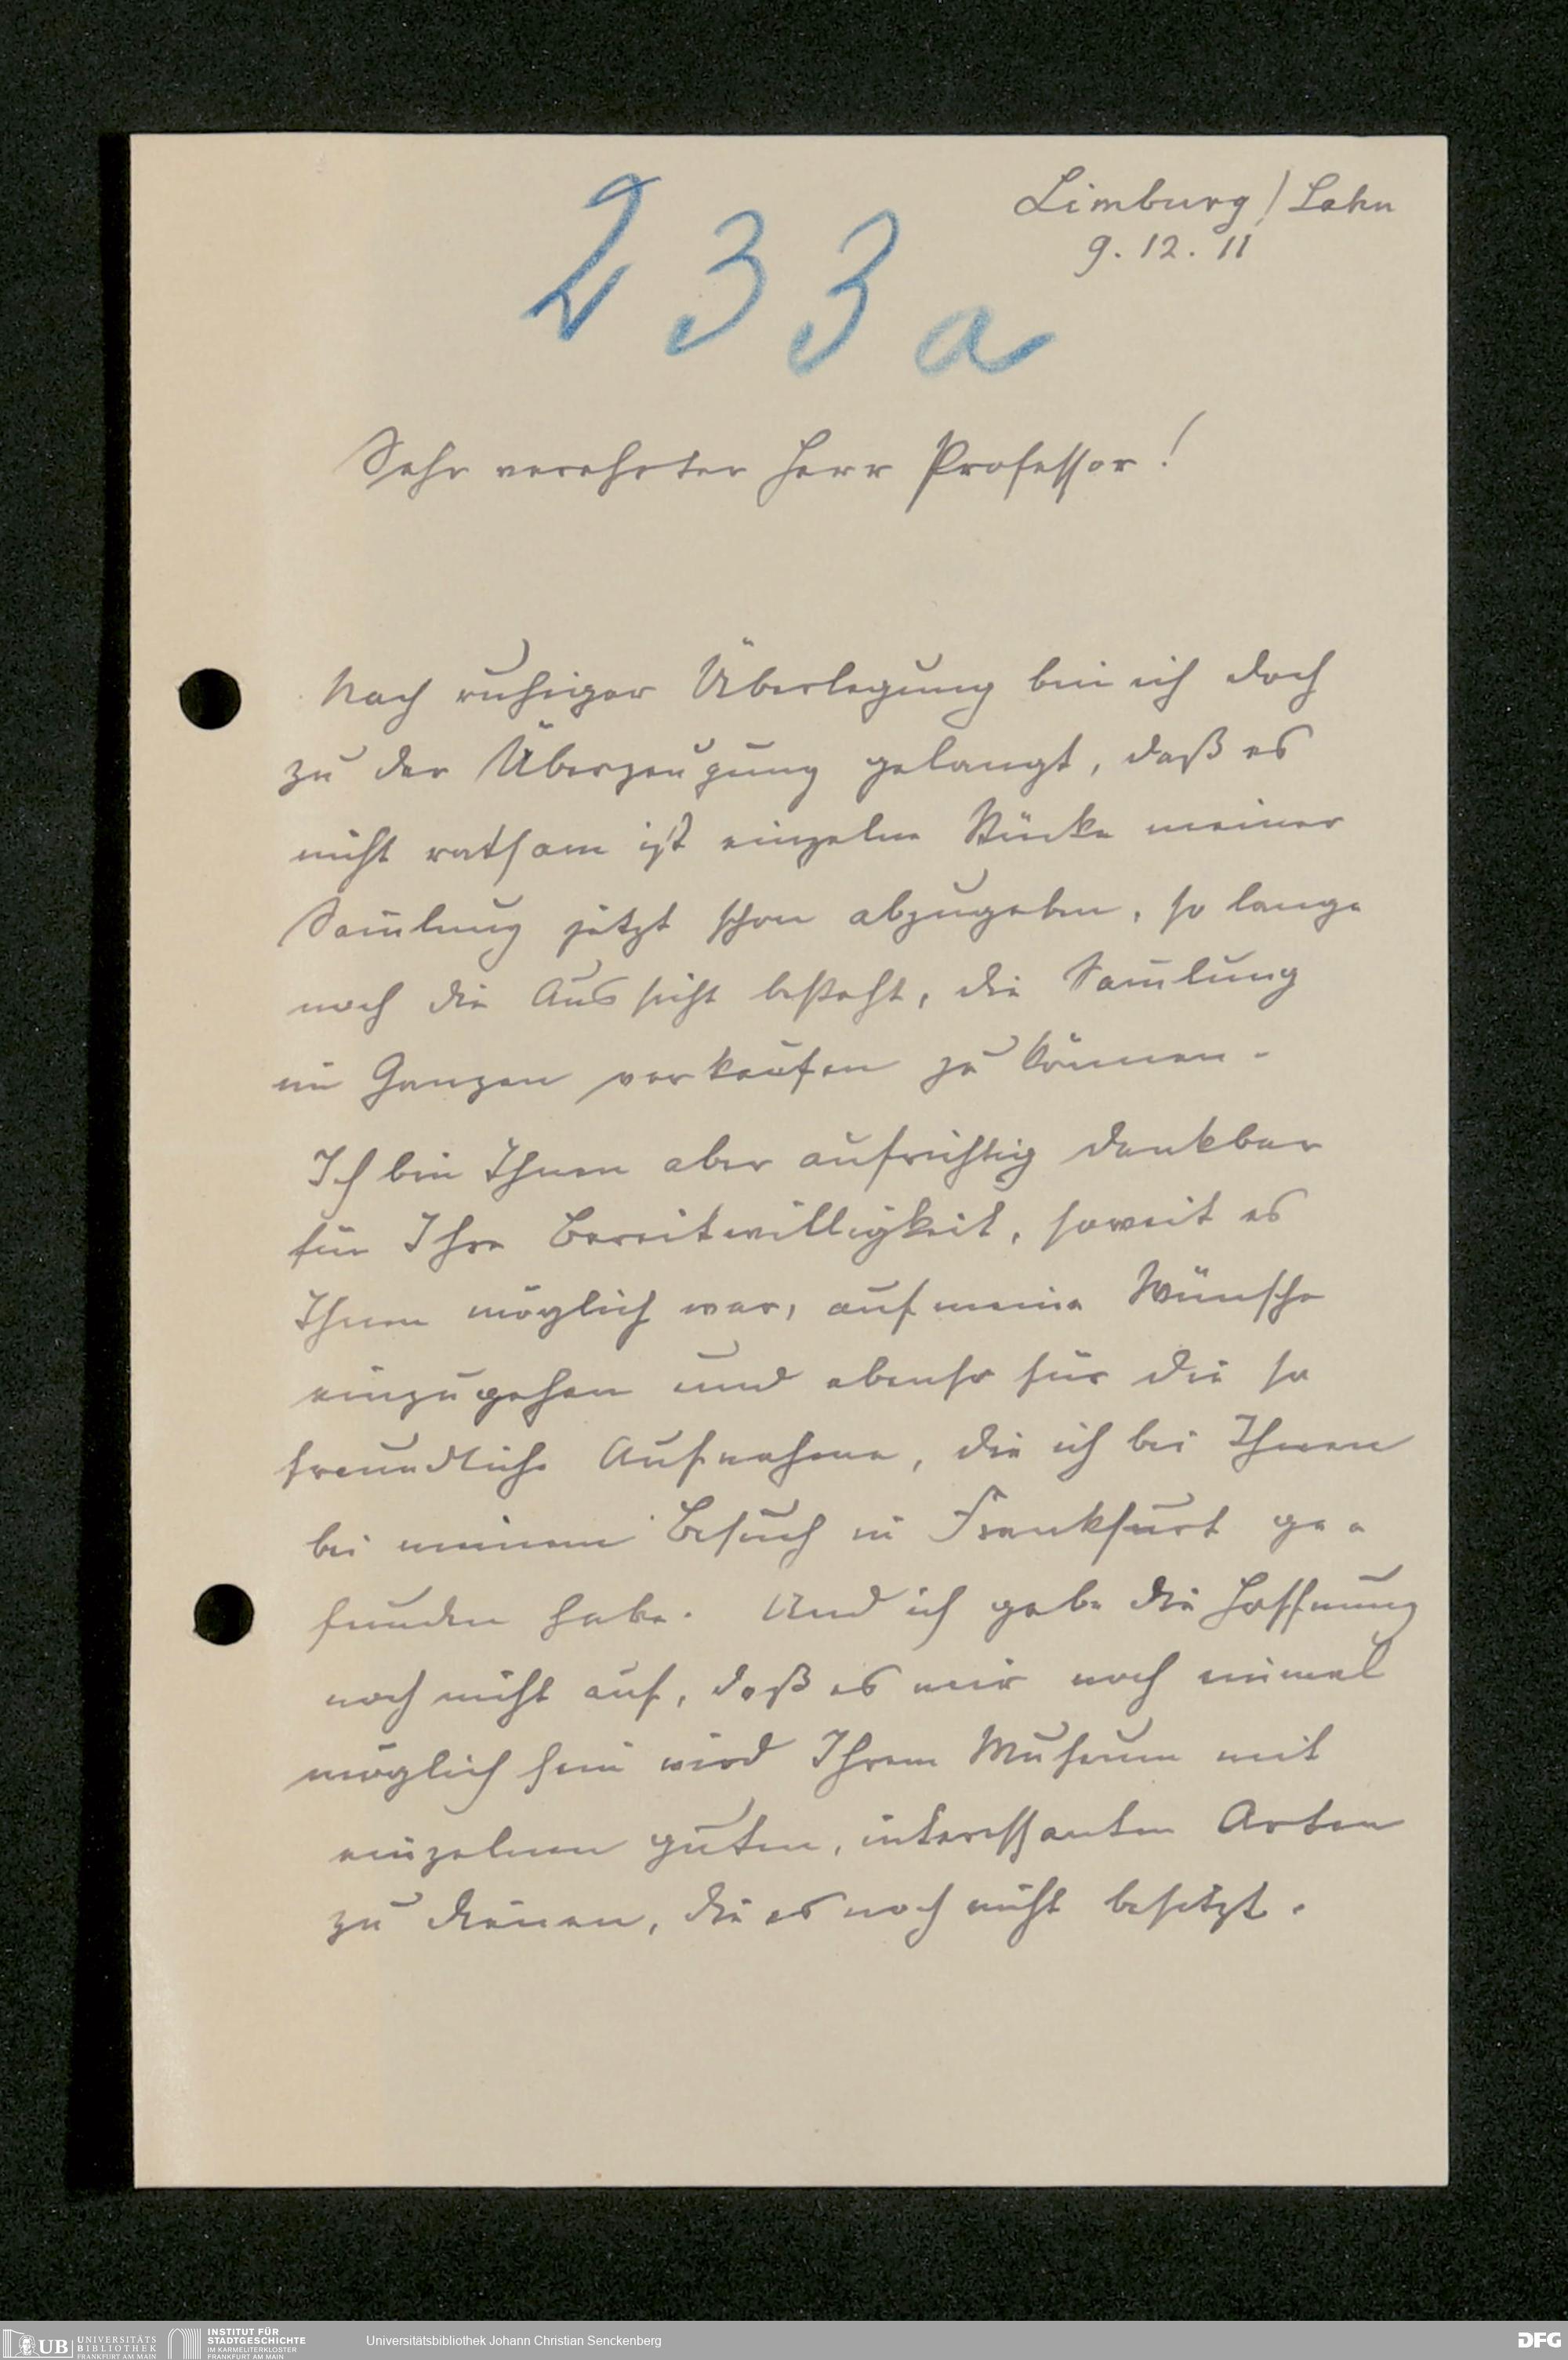 Limburg / Lahn
9. 12. 11
233a
Sehr verehrter Herr Professor!
Nach ruhiger Überlegung bin ich doch
zu der Überzeugung gelangt, daß es
nicht ratsam ist einzelne Stücke meiner
Sam̄lung jetzt schon abzugeben, so lange
noch die Aussicht besteht, die Sam̄lung
im Ganzen verkaufen zu können.
Ich bin Ihnen aber aufrichtig dankbar
für Ihre Bereitwilligkeit, soweit es
Ihnen möglich war, auf meine Wünsche
einzugehen und ebenso für die so
freundliche Aufnahme, die ich bei Ihnen
bei meinem Besuch in Frankfurt ge-
funden habe. Und ich gebe die Hoffnung
noch nicht auf, daß es mir noch einmal
möglich sein wird Ihrem Museum mit
einzelnen guten, interessanten Arten
zu dienen, die es noch nicht besitzt.
UB UNIVERSITÄTS
BIBLIOTHEK
FRANKFURT AM MAIN
INSTITUT FÜR
STADTGESCHICHTE
IM KARMELITERKLOSTER
FRANKFURT AM MAIN
Universitätsbibliothek Johann Christian Senckenberg
DFG